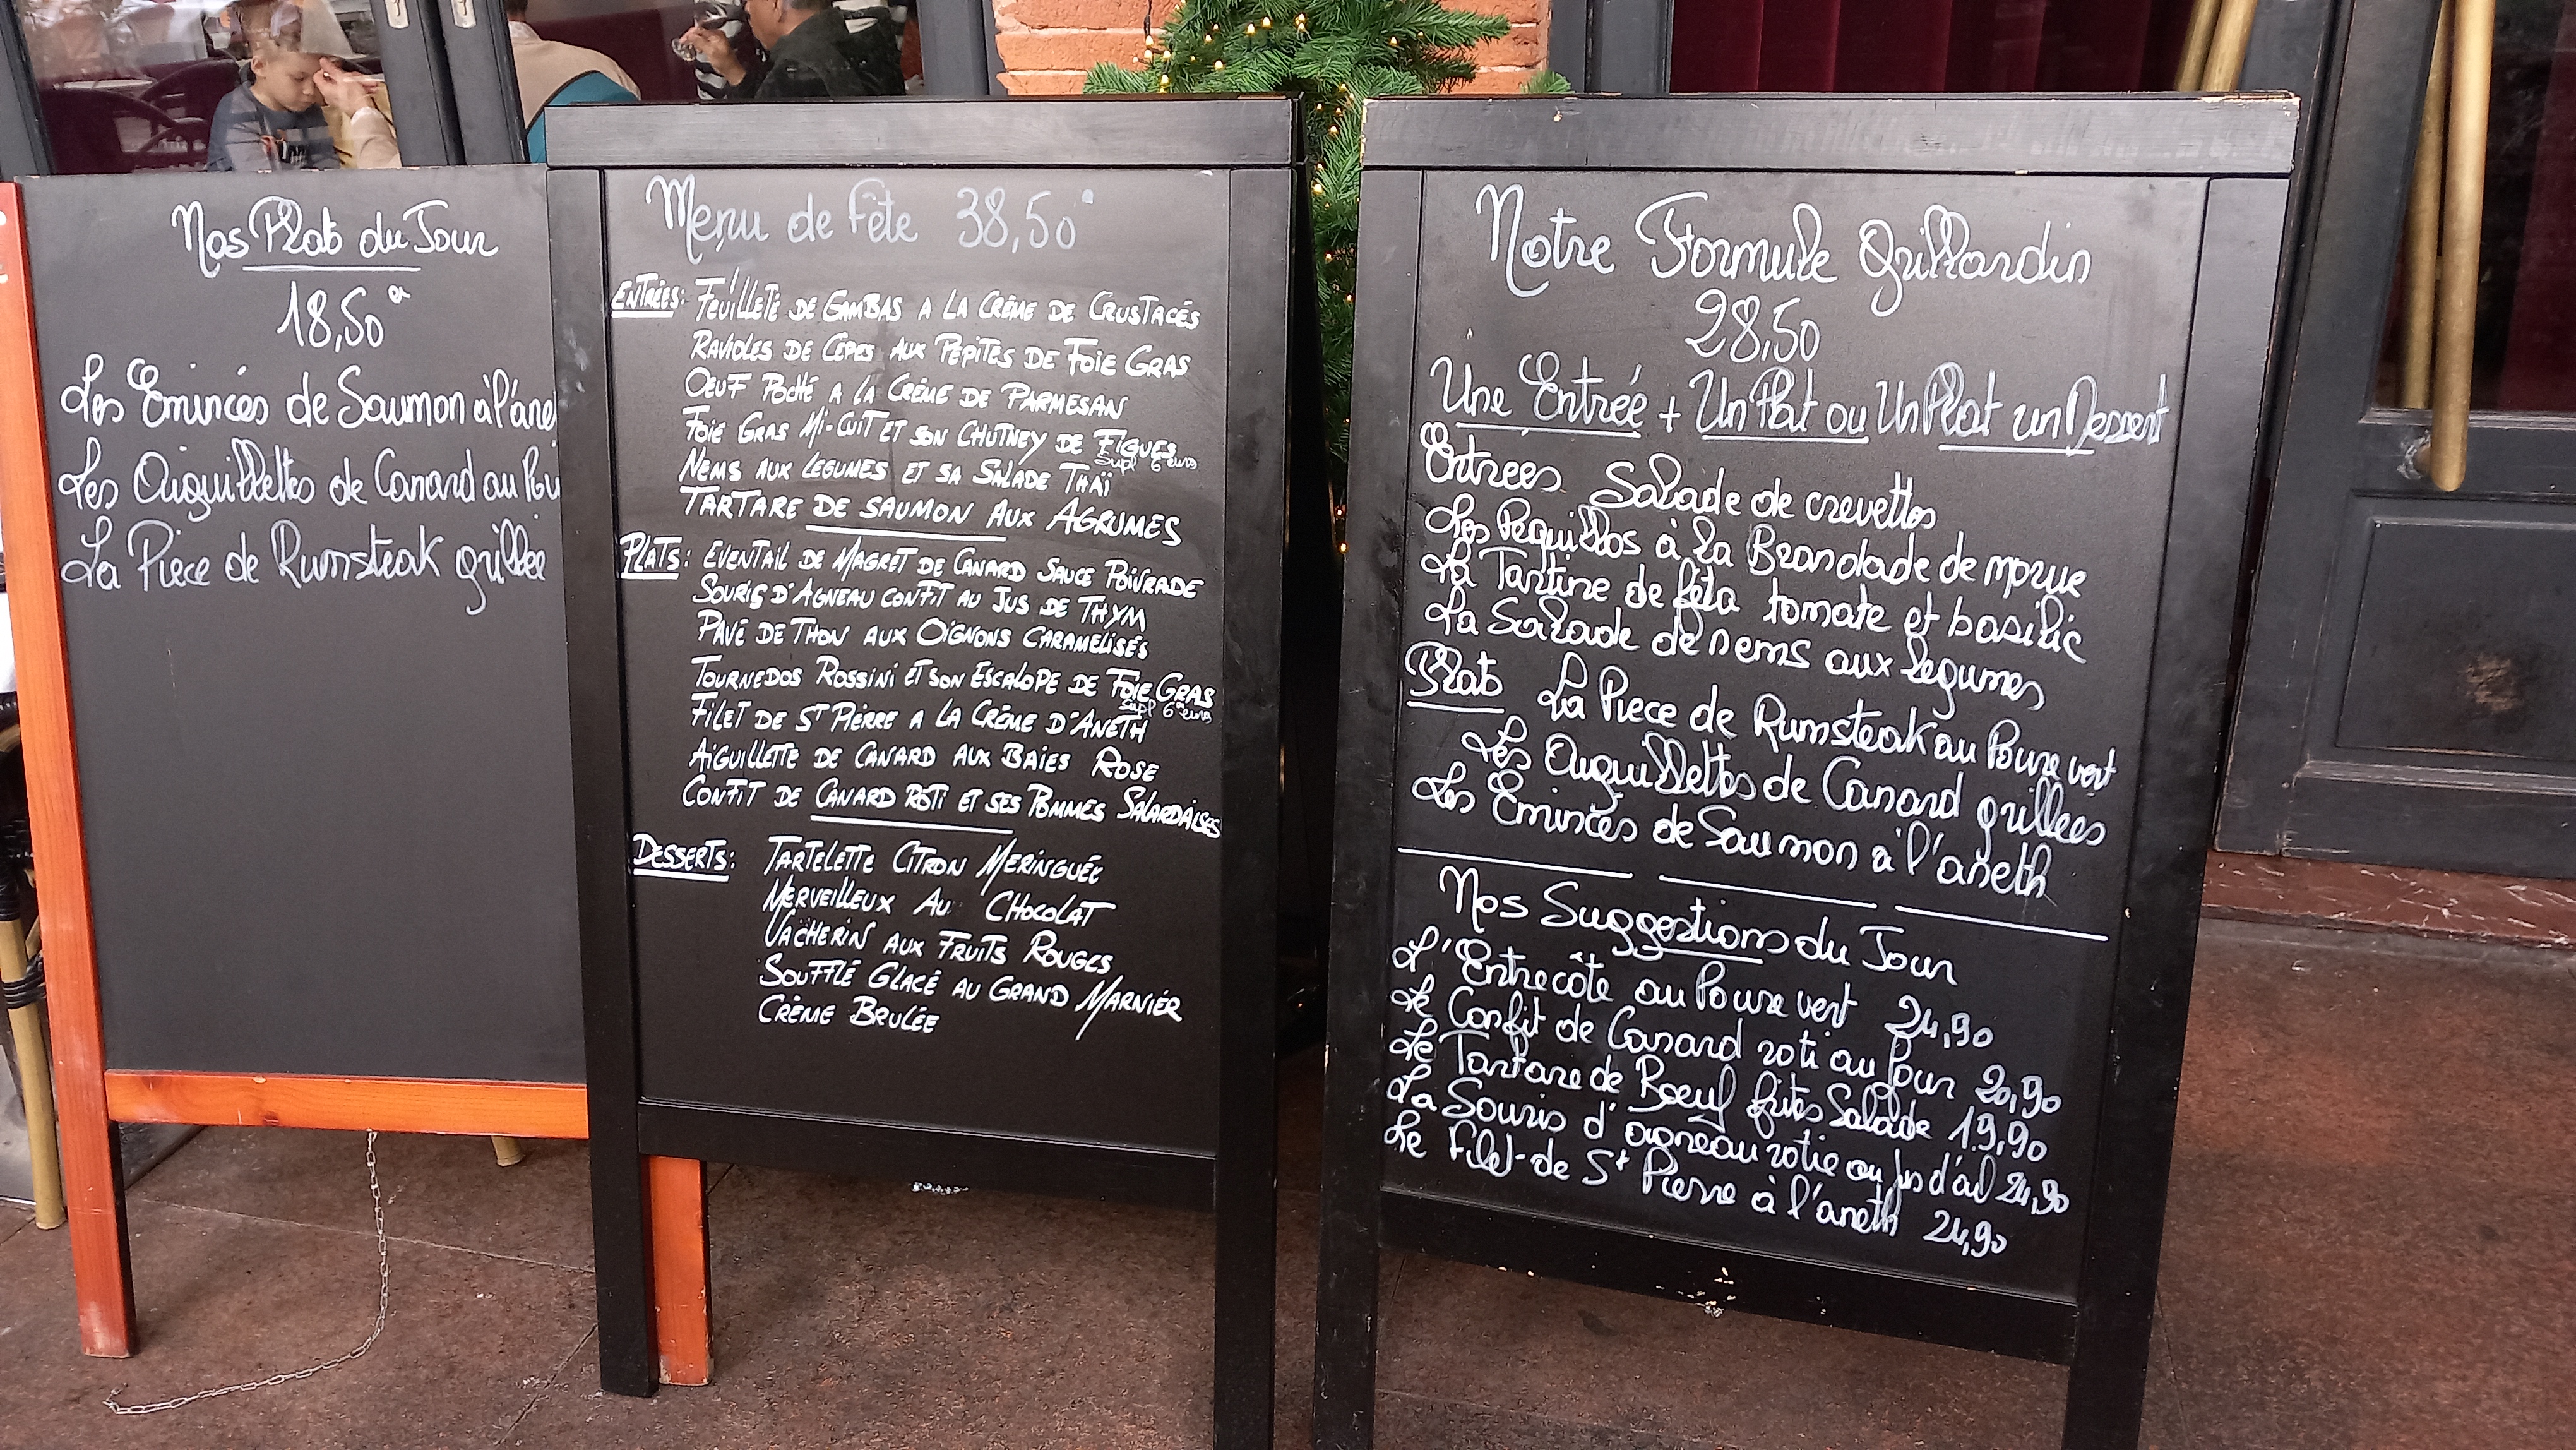 Nos Plats du Jour
18,50
Les Emincés de Saumon à l'ane
Les Aiguillettes de Canard au Poiv
La Pièce de Rumsteak grillée
Menu de Fête 38,50
ENTRÉES: FEUILLETÉ DE GAMBAS A LA CRÈME DE CRUSTACÉS
RAVIOLES DE CÈPES AUX PEPITES DE FOIE GRAS
OEUF POCHÉ A LA CRÈME DE PARMESAN
FOIE GRAS MI-CUIT ET SON CHUTNEY DE FIGUES
Supl 6 euros
NEMS AUX LEGUMES ET SA SALADE THAÏ
TARTARE DE SAUMON AUX AGRUMES
PLATS: EVENTAIL DE MAGRET DE CANARD SAUCE POIVRADE
SOURIS D'AGNEAU CONFIT AU JUS DE THYM
PAVÉ DE THON AUX OIGNONS CARAMELISÉS
TOURNEDOS ROSSINI ET SON ESCALOPE DE FOIE GRAS
Supl 6 euros
FILET DE ST PIERRE A LA CRÈME D'ANETH
AIGUILLETTE DE CANARD AUX BAIES ROSE
CONFIT DE CANARD ROTI ET SES POMMES SALARDAISES
DESSERTS: TARTELETTE CITRON MERINGUÉE
MERVEILLEUX AU CHOCOLAT
VACHERIN AUX FRUITS ROUGES
SOUFFLÉ GLACÉ AU GRAND MARNIER
CRÈME BRULÉE
Notre Formule Grillardin
28,50
Une Entrée + Un Plat ou Un Plat un Dessert
Entrées Salade de crevettes
Les Pequillos à la Brandade de morue
La Tartine de féta tomate et basilic
La Salade de nems aux legumes
Plats La Piece de Rumsteak au Poivre vert
Les Aiguillettes de Canard grillees
Les Emincés de Saumon à l'aneth
Nos Suggestions du Jour
L'Entrecôte au Poivre vert 24,90
Le Confit de Canard roti au Four 20,90
Le Tartare de Boeuf frites Salade 19,90
La Souris d'agneau rotie au jus d'ail 24,90
Le Filet de St Pierre à l'aneth 24,90